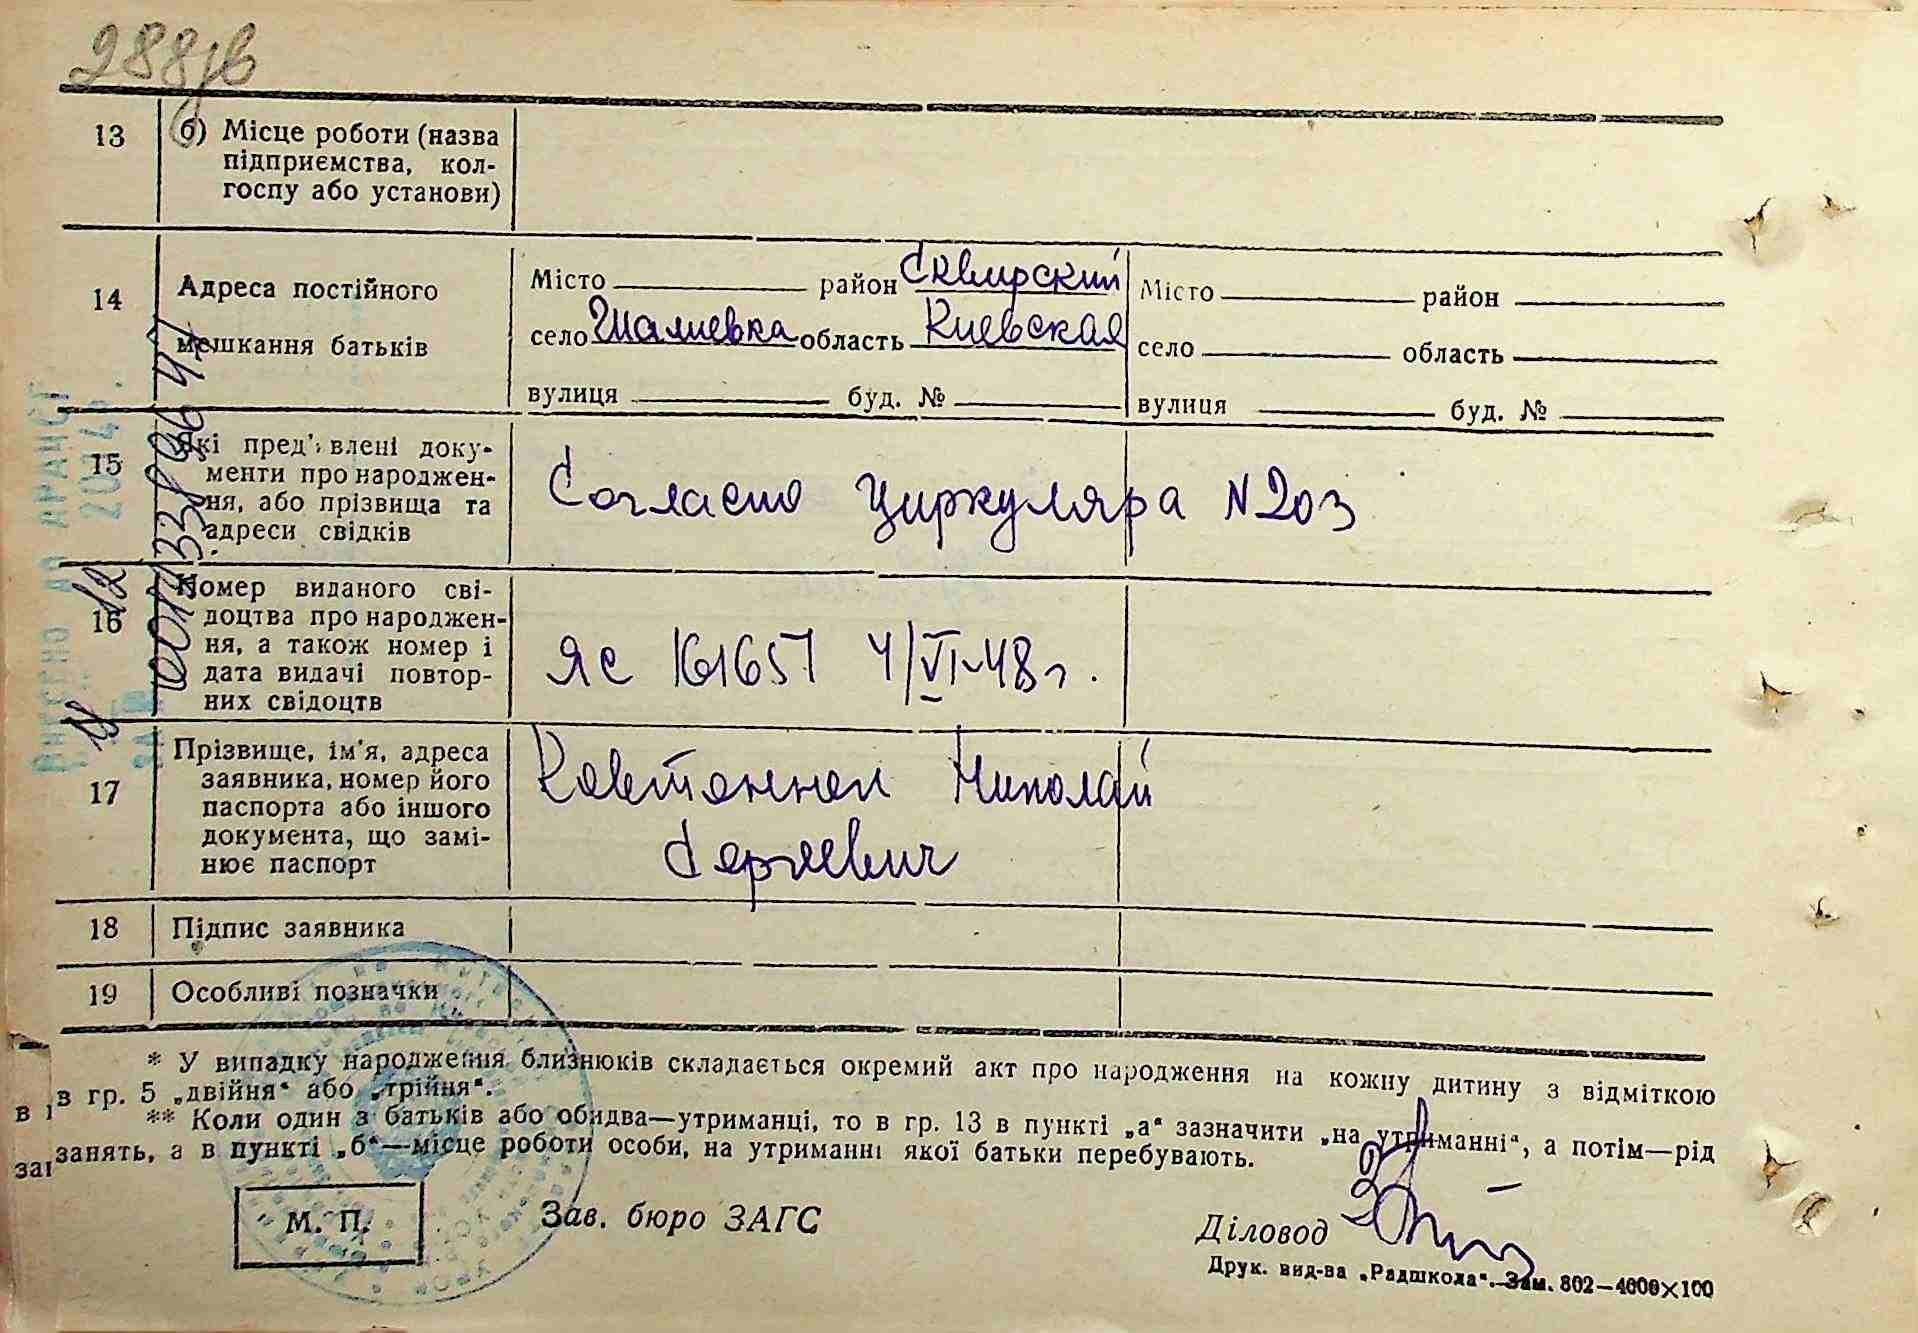 288зв
13 б) Місце роботи (назва
підприємства, кол-
госпу або установи)
14 Адреса постійного
мешкання батьків
Місто район Сквирский
село Шалиевка область Киевская
вулиця буд. №
Місто район
село область
вулиця буд. №
15 Які пред'явлені доку-
менти про народжен-
ня, або прізвища та
адреси свідків
Согласно циркуляра N203
16 Номер виданого сві-
доцтва про народжен-
ня, а також номер і
дата видачі повтор-
них свідоцтв
ЯС 161657 4/VI-48 г.
17 Прізвище, ім'я, адреса
заявника, номер його
паспорта або іншого
документа, що замі-
нює паспорт
Николай
Сергеевич
18 Підпис заявника
19 Особливі позначки
* У випадку народження близнюків складається окремий акт про народження на кожну дитину з відміткою
в гр. 5 „двійня“ або „трійня“.
** Коли один з батьків або обидва—утриманці, то в гр. 13 в пункті „а“ зазначити „на утриманні“, а потім—рід
занять, а в пункті „б“—місце роботи особи, на утриманні якої батьки перебувають.
М. П.
Зав. бюро ЗАГС
Діловод
Друк. вид-ва „Радшкола“. Зам. 802—4000×100
Внесено до ДРАЦСГ